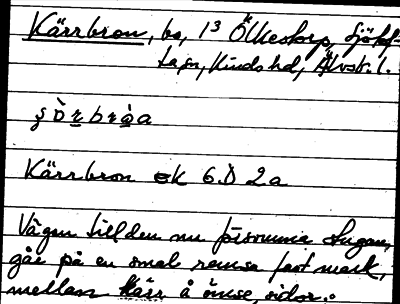 Kärrbron, bo, 13 Ölkestorp, Sjötof-
ta sn, Kinds hd, Älvsb. l.
Kärrbron ek 6 D 2a
Vägen till den nu försvunna stugan,
går på en smal remsa fast mark,
mellan kärr å ömse sidor.